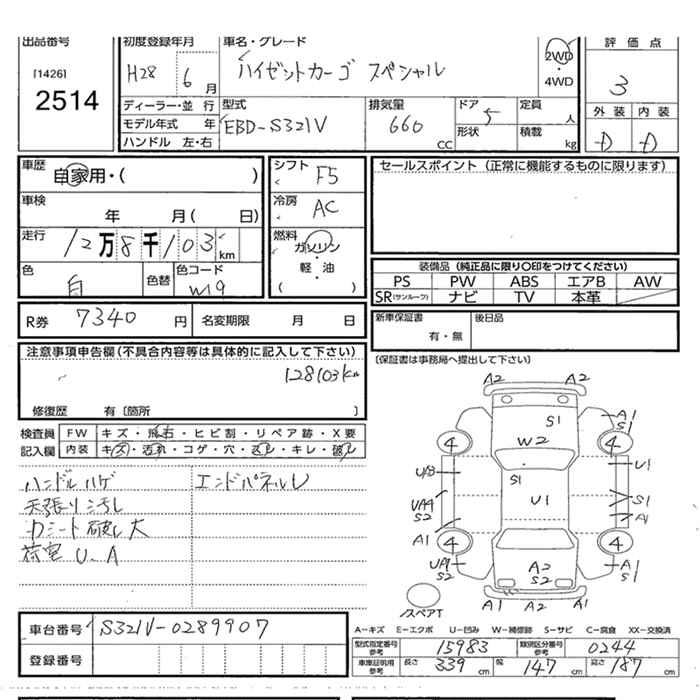 出品番号 初度登録年月 車名・グレード 評価点
[1426] 2514 H28 6月 ハイゼットカーゴ スペシャル 2WD・4WD 3
ディーラー・並行 型式 排気量 ドア 定員 人 外装 内装
モデル年式 年 EBD-S321V 660 CC 5 形状 積載 kg D D
ハンドル 左・右
車歴 自家用・( ) シフト F5 セールスポイント (正常に機能するものに限ります)
車検 年 月( 日) 冷房 AC
走行 12万8千103km 燃料 ガソリン・軽油 ( )
色 白 色替 色コード W19
装備品 (純正品に限り○印をつけてください)
PS PW ABS エアB AW
SR(サンルーフ) ナビ TV 本革
R券 7340円 名変期限 月 日
新車保証書 有・無 後日品
(保証書は事務局へ提出して下さい)
注意事項申告欄(不具合内容等は具体的に記入して下さい)
128103km
修復歴 有〔箇所 〕
検査員記入欄 FW キズ・飛石・ヒビ割・リペア跡・X要
内装 キズ・汚れ・コゲ・穴・ズレ・キレ・破レ
ハンドルハゲ エンドパネルU
天張り汚し
Dシート破レ大
荷室U、A
A2 A2
S1 A1 S1
W2
4 4
U/B S1 U1
U1
UA9 S2 S1 A1
A1 4 4
UA9 S2 A2 S2 A1 S1
スペアT A1 A2 A1
車台番号 S321V-0289907
登録番号
A-キズ E-エクボ U-凹み W-補修跡 S-サビ C-腐食 XX-交換済
型式指定番号 参考 15983 類別区分番号 参考 0244
車庫証明用 参考 長さ 339cm 幅 147cm 高さ 187cm